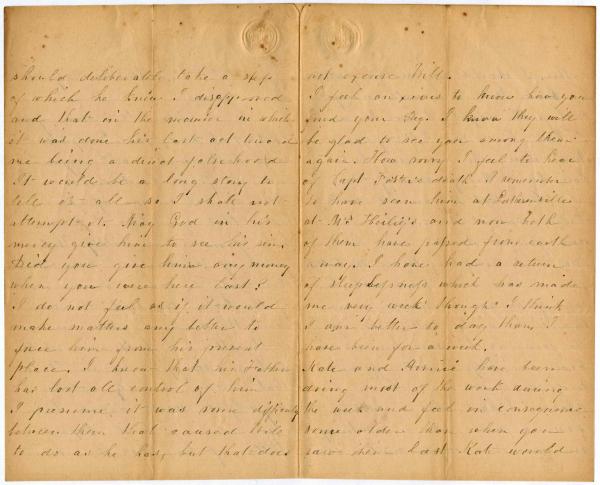 should deliberately take a step
of which he knew I disapproved
and that on the manner in which
it was done his last act toward
me being a direct falsehood
It would be a long story to
tell it all so I shall not
attempt it. May God in his
mercy give him to see his sin.
Did you give him any money
when you were here last?
I do not feel as if it would
make matters any better to
force him from his present
place. I know that his Father
has lost all control of him
I presume it was some difficulty
between them that caused Will
to do as he has, but that does
not excuse Will.
I feel anxious to know how you
find your Reg. I know they will
be glad to see you among them
again. How sorry I feel to hear
of Capt Foster's death I remember
to have seen him at
at Mr Heilig's and now both
of them have passed from earth
away. I have had a return
of sleeplessness which has made
me very weak though I think
I am better to day than I
have been for a week.
Kate and Annie have been
doing most of the work during
the week and feel in consequence
some older than when you
saw them last Kate would